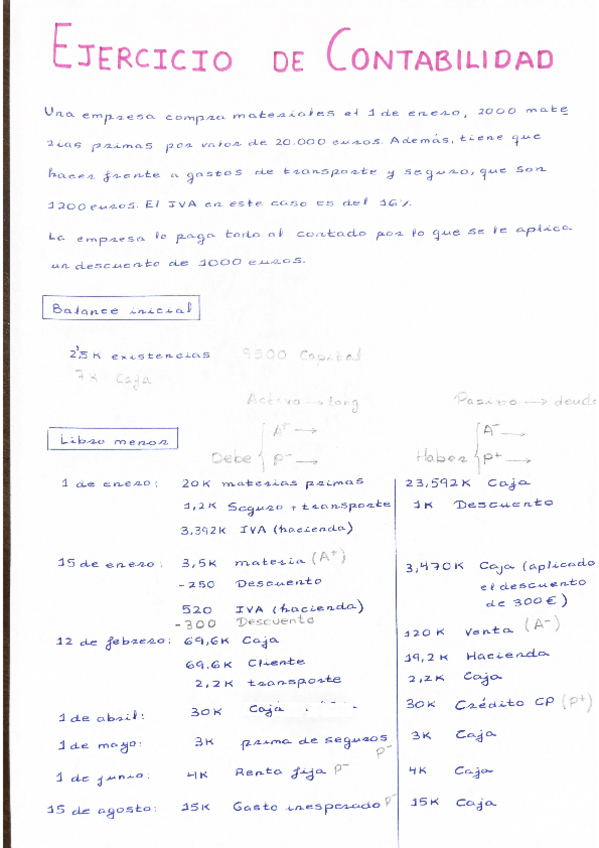 EJERCICIO DE CONTABILIDAD
Una empresa compra materiales el 1 de enero, 2000 mate
rias primas por valor de 20.000 euros. Además, tiene que
hacer frente a gastos de transporte y seguro, que son
1200 euros. El IVA en este caso es del 16%.
La empresa lo paga todo al contado por lo que se le aplica
un descuento de 1000 euros.
Balance inicial
2'5K existencias 9500 Capital
7K Caja
Activo → long Pasivo → deud
Libro menor
Debe { A+ → Haber { A- →
P- → P+ →
1 de enero: 20K materias primas 23,592K Caja
1,2K Seguro + transporte 1K Descuento
3,392K IVA (hacienda)
15 de enero: 3,5K materia (A+) 3,470K Caja (aplicado
-250 Descuento el descuento
520 IVA (hacienda) de 300€)
-300 Descuento
12 de febrero: 69,6K Caja 120K Venta (A-)
69.6K Cliente 19,2K Hacienda
2,2K transporte 2,2K Caja
1 de abril: 30K Caja 30K Crédito CP (P+)
1 de mayo: 3K prima de seguros P- 3K Caja
1 de junio: 4K Renta fija P- 4K Caja
15 de agosto: 15K Gasto inesperado P- 15K Caja